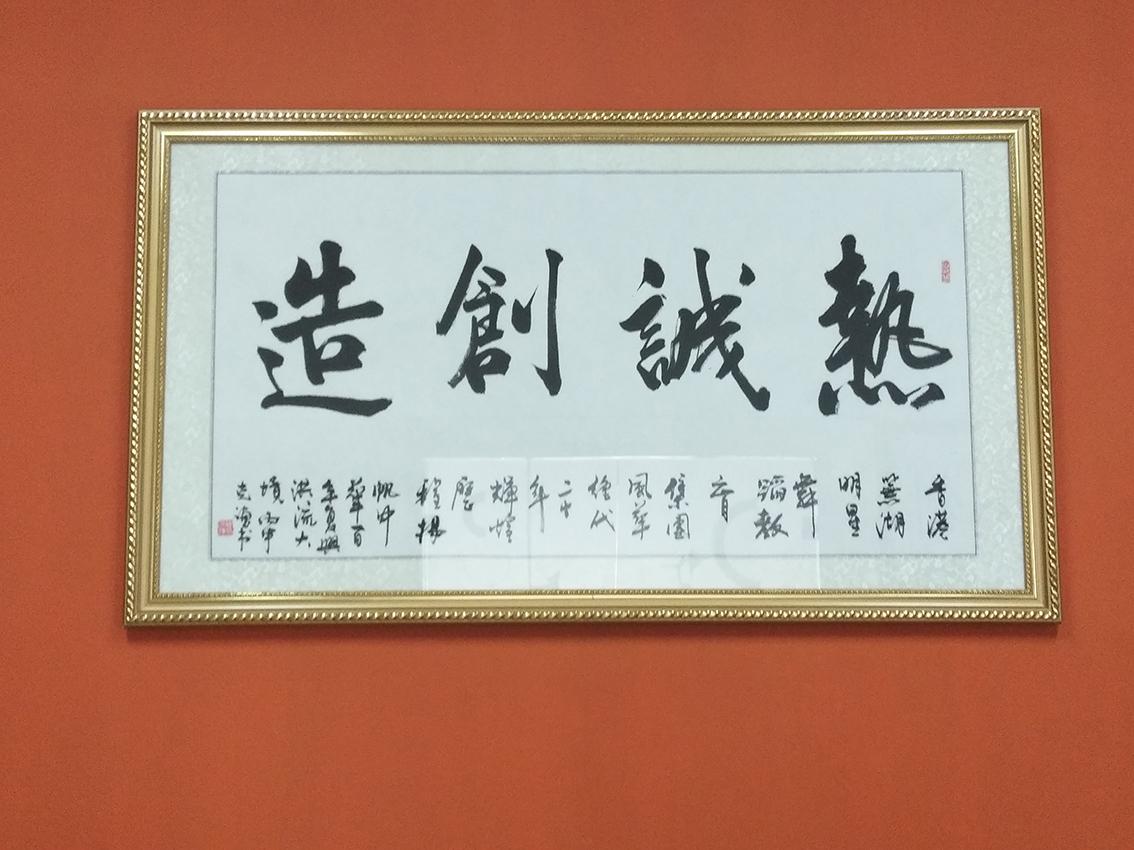 熱誠創造
香港
蕪湖
明星
舞
蹈教
育
集團
風華
絕代
二十
年
輝煌
歷
程揚
帆中
華百
年復興
洪流大
丙申
克
書